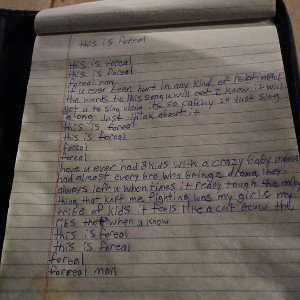 this is foreal
this is foreal
this is foreal
foreal man
if u ever been hurt in any kind of relationship
the words to this song u will get I know it will
get u to sing along its so catchy so just sing
along just think about it
this is foreal
this is foreal
foreal
foreal
have u ever had 3 kids with a crazy baby mama
had almost every bro who bringz drama they
always left u when times it really tough the only
thing that kept me fighting was my girl & my
tribe of kids it feels like a cut below the
ribs that when u know
this is foreal
this is foreal
foreal
foreal man